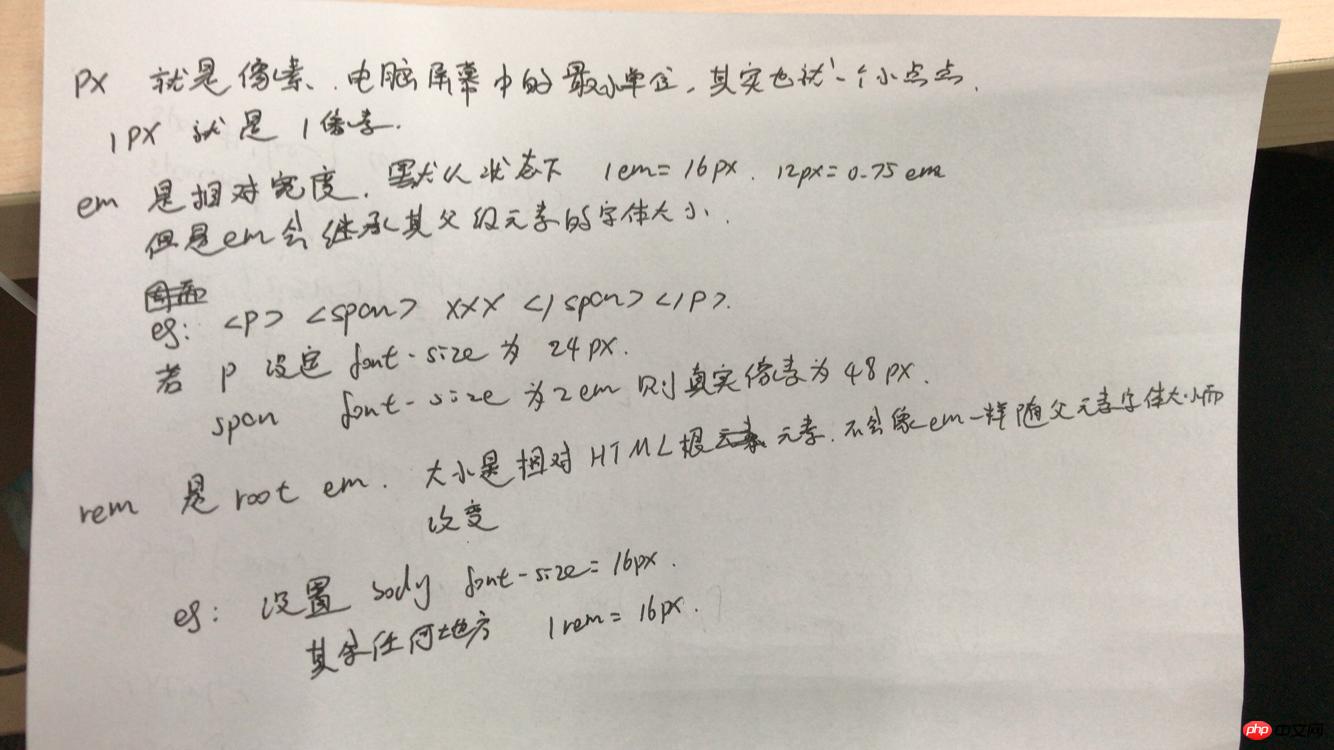 px 就是像素、电脑屏幕中的最小单位，其实也就一个小点点.
1PX 就是 1像素.
em 是相对宽度. 默认状态下 1em=16px. 12px=0.75em
但是em会继承其父级元素的字体大小.
eg: <p> <span> xxx </span> </p>.
若 p 设定 font-size 为 24px.
span font-size 为2em 则真实像素为 48px.
rem 是 root em. 大小是相对 HTML根元素. 不会像em一样随父元素字体大小而
改变
eg: 设置 body font-size=16px.
其余任何地方 1rem=16px.
php 中文网